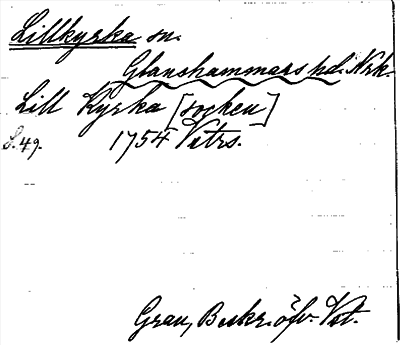 Lillkyrka sn.
Glanshammars hd. Nrk.
Lill Kyrka [socken]
S. 49. 1754 Vstrs.
Grau, Beskr. öfv. Vst.